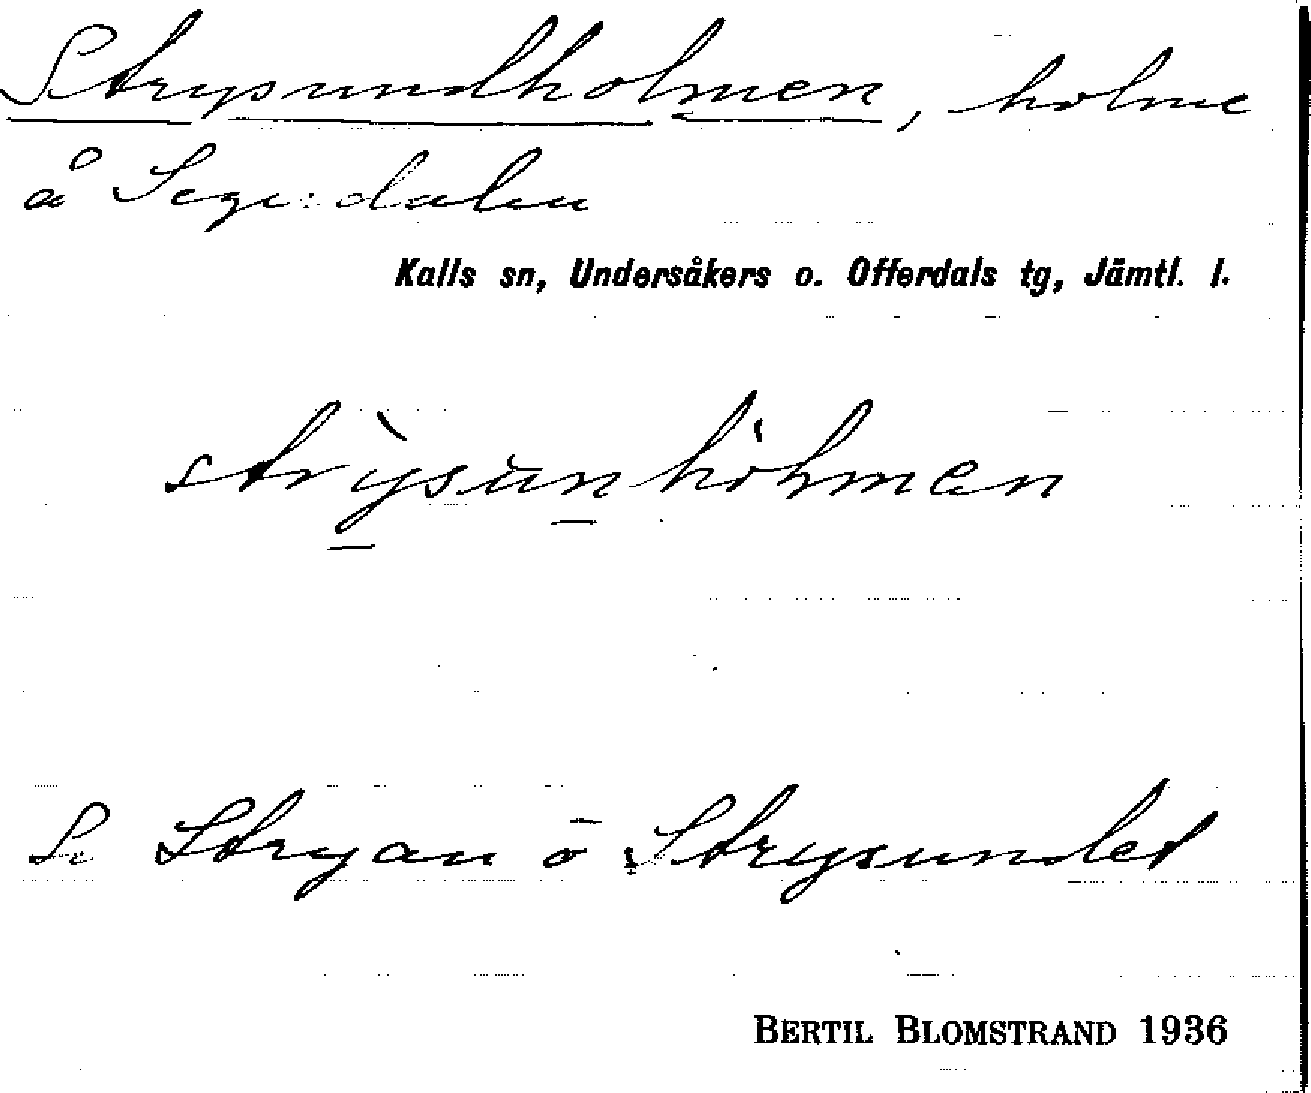 Strysundholmen, holme
å
Kalls sn, Undersåkers o. Offerdals tg, Jämtl. l.
strỳsunhòhmen
Se Stryan o Strysundet
BERTIL BLOMSTRAND 1936